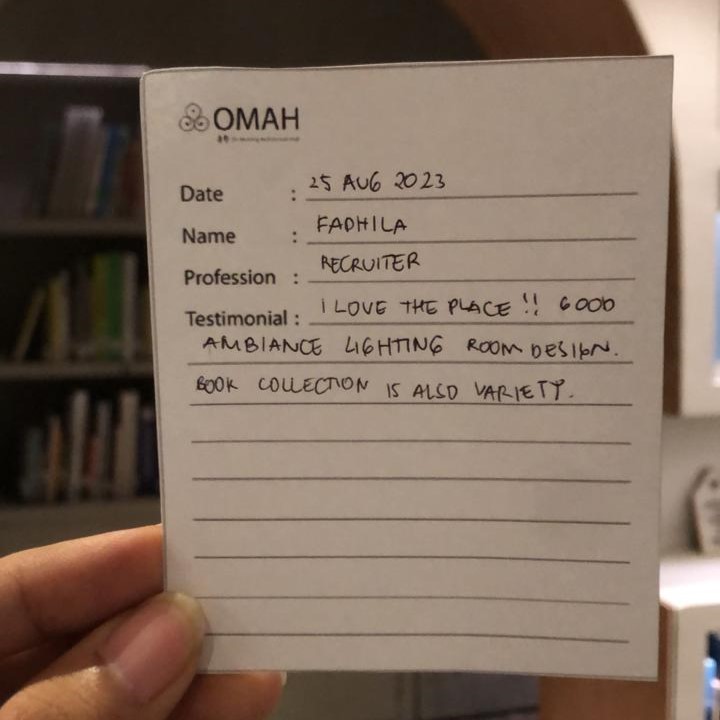 OMAH
Date : 25 AUG 2023
Name : FADHILA
Profession : RECRUITER
Testimonial : I LOVE THE PLACE !! GOOD
AMBIANCE LIGHTING ROOM DESIGN.
BOOK COLLECTION IS ALSO VARIETY.